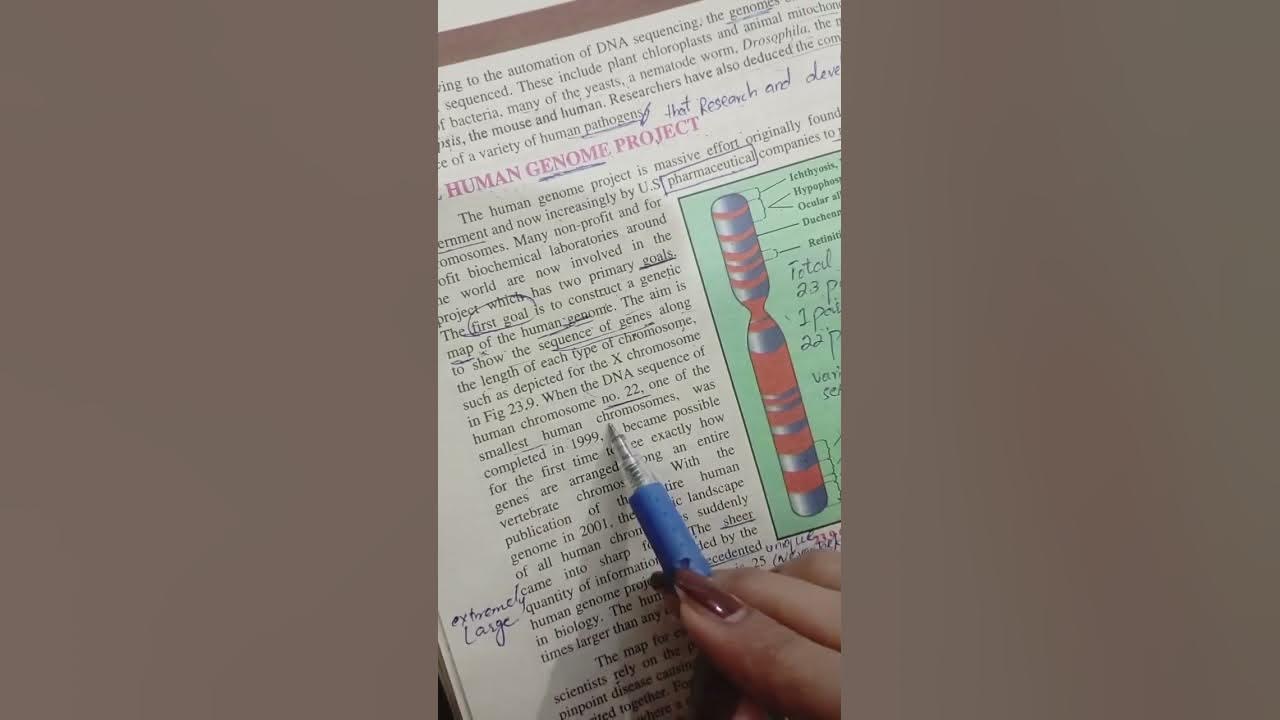 ving to the automation of DNA sequencing, the genomes
sequenced. These include plant chloroplasts and animal mitochon
f bacteria, many of the yeasts, a nematode worm, Drosophila, the m
psis, the mouse and human. Researchers have also deduced the com
ce of a variety of human pathogens that Research and deve
HUMAN GENOME PROJECT
The human genome project is massive effort originally found
ernment and now increasingly by U.S pharmaceutical companies to
omosomes. Many non-profit and for
ofit biochemical laboratories around
e world are now involved in the
project which has two primary goals.
The first goal is to construct a genetic
map of the human genome. The aim is
to show the sequence of genes along
the length of each type of chromosome,
such as depicted for the X chromosome
in Fig 23.9. When the DNA sequence of
human chromosome no. 22, one of the
smallest human chromosomes, was
completed in 1999, became possible
for the first time ee exactly how
genes are arranged ong an entire
vertebrate chromos With the
publication of th tire human
genome in 2001, the ic landscape
of all human chro s suddenly
came into sharp fo The sheer
quantity of information ded by the
human genome proje ecedented unique
in biology. The hum 25
times larger than any
extremely
Large
The map for e
scientists rely on the p
pinpoint disease causin
ited together. Fo
where a
Ichthyosis,
Hypophosp
Ocular al
Duchenn
Retiniti
Total
23 p
1 pai
22 p
vari
se